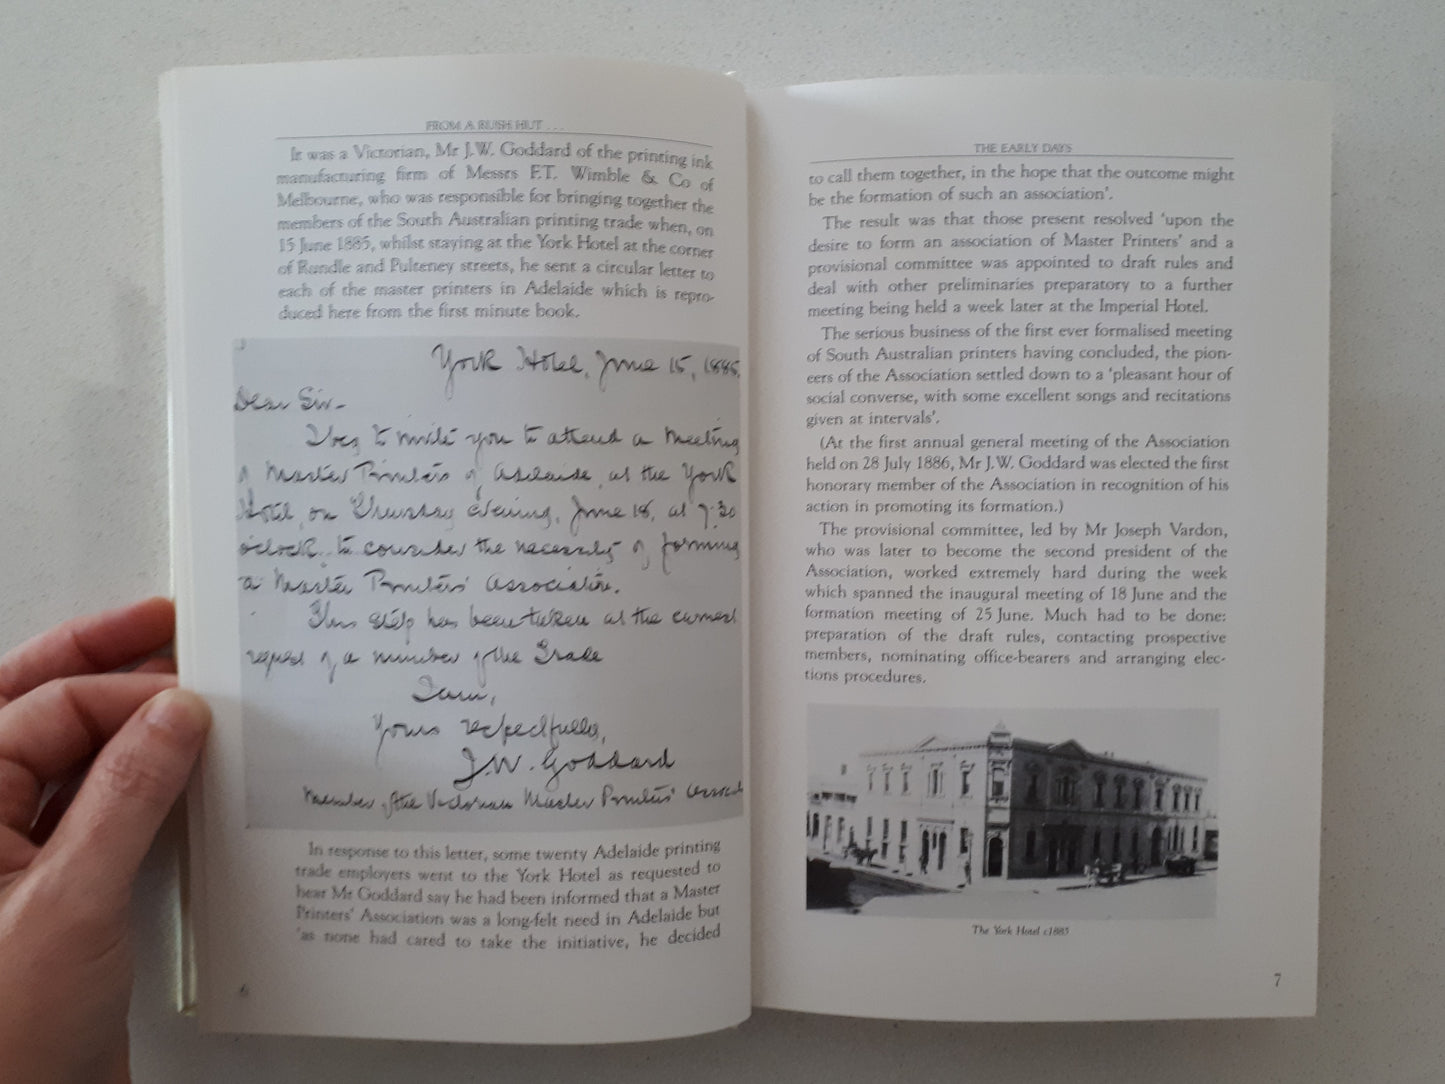 FROM A RUSH HUT . . .
It was a Victorian, Mr J.W. Goddard of the printing ink
manufacturing firm of Messrs F.T. Wimble & Co of
Melbourne, who was responsible for bringing together the
members of the South Australian printing trade when, on
15 June 1885, whilst staying at the York Hotel at the corner
of Rundle and Pulteney streets, he sent a circular letter to
each of the master printers in Adelaide which is repro-
duced here from the first minute book.
York Hotel, June 15, 1885.
Dear Sir-
I beg to invite you to attend a meeting
of Master Printers of Adelaide, at the York
Hotel, on Thursday evening, June 18, at 7.30
o'clock, to consider the necessity of forming
a Master Printers' Association.
This step has been taken at the earnest
request of a number of the Trade
I am,
Yours respectfully,
J.W. Goddard
Member of the Victorian Master Printers'
In response to this letter, some twenty Adelaide printing
trade employers went to the York Hotel as requested to
hear Mr Goddard say he had been informed that a Master
Printers' Association was a long-felt need in Adelaide but
'as none had cared to take the initiative, he decided
6
THE EARLY DAYS
to call them together, in the hope that the outcome might
be the formation of such an association'.
The result was that those present resolved 'upon the
desire to form an association of Master Printers' and a
provisional committee was appointed to draft rules and
deal with other preliminaries preparatory to a further
meeting being held a week later at the Imperial Hotel.
The serious business of the first ever formalised meeting
of South Australian printers having concluded, the pion-
eers of the Association settled down to a 'pleasant hour of
social converse, with some excellent songs and recitations
given at intervals'.
(At the first annual general meeting of the Association
held on 28 July 1886, Mr J.W. Goddard was elected the first
honorary member of the Association in recognition of his
action in promoting its formation.)
The provisional committee, led by Mr Joseph Vardon,
who was later to become the second president of the
Association, worked extremely hard during the week
which spanned the inaugural meeting of 18 June and the
formation meeting of 25 June. Much had to be done:
preparation of the draft rules, contacting prospective
members, nominating office-bearers and arranging elec-
tions procedures.
The York Hotel c1885
7